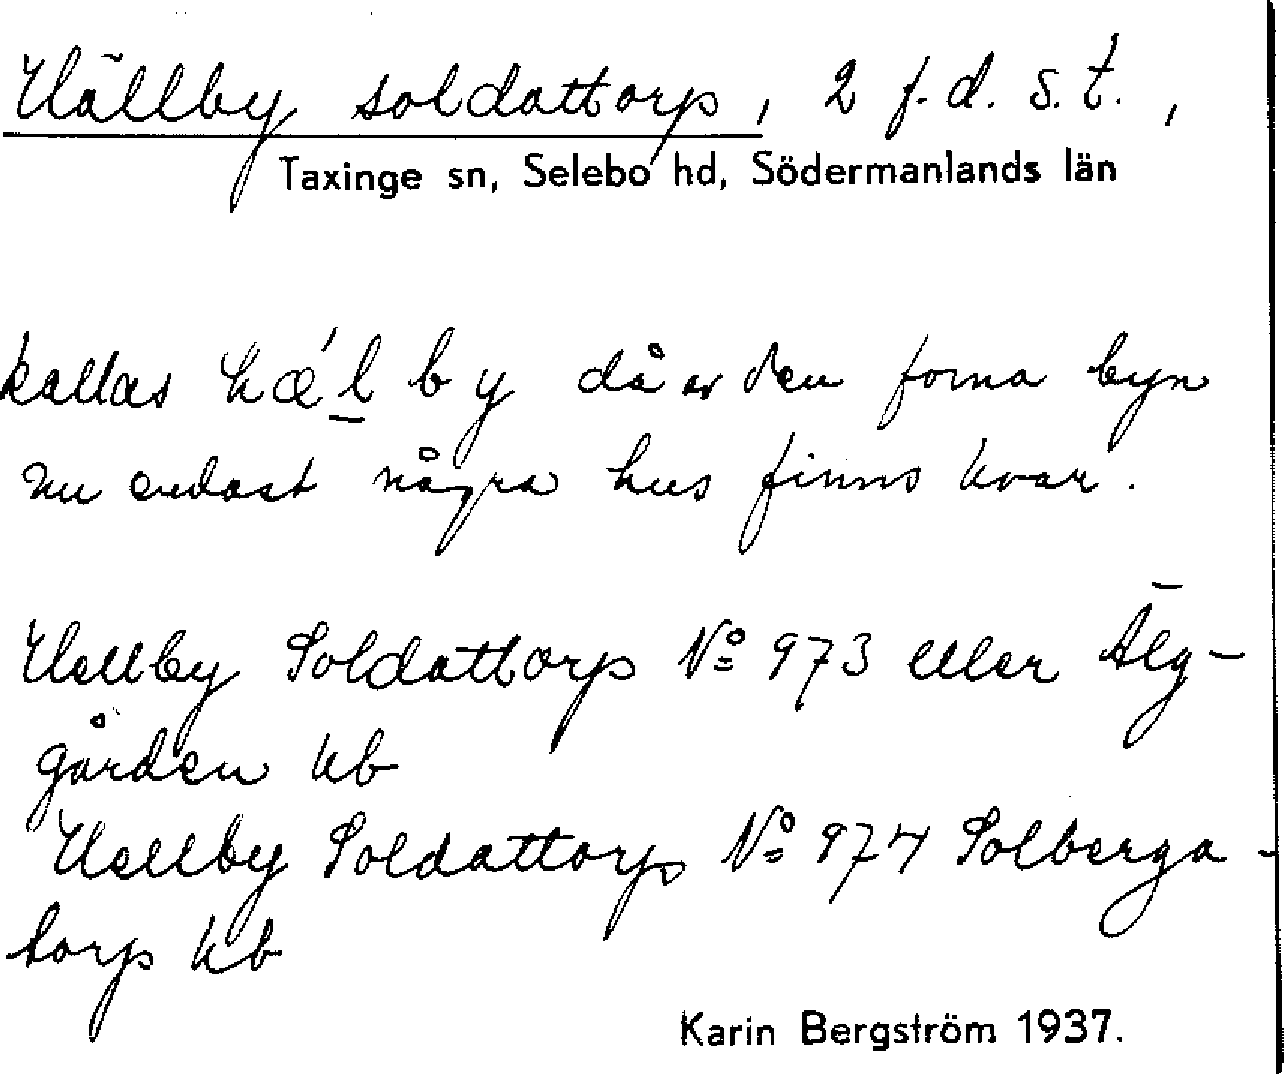 Hällby soldattorp, 2 f.d. s.t.,
Taxinge sn, Selebo hd, Södermanlands län
kallas hǽl by då av den forna byn
nu endast några hus finns kvar.
Hellby Soldattorp No 973 eller Älg-
gården kb
Hellby Soldattorp No 974 Solberga-
torp kb
Karin Bergström 1937.